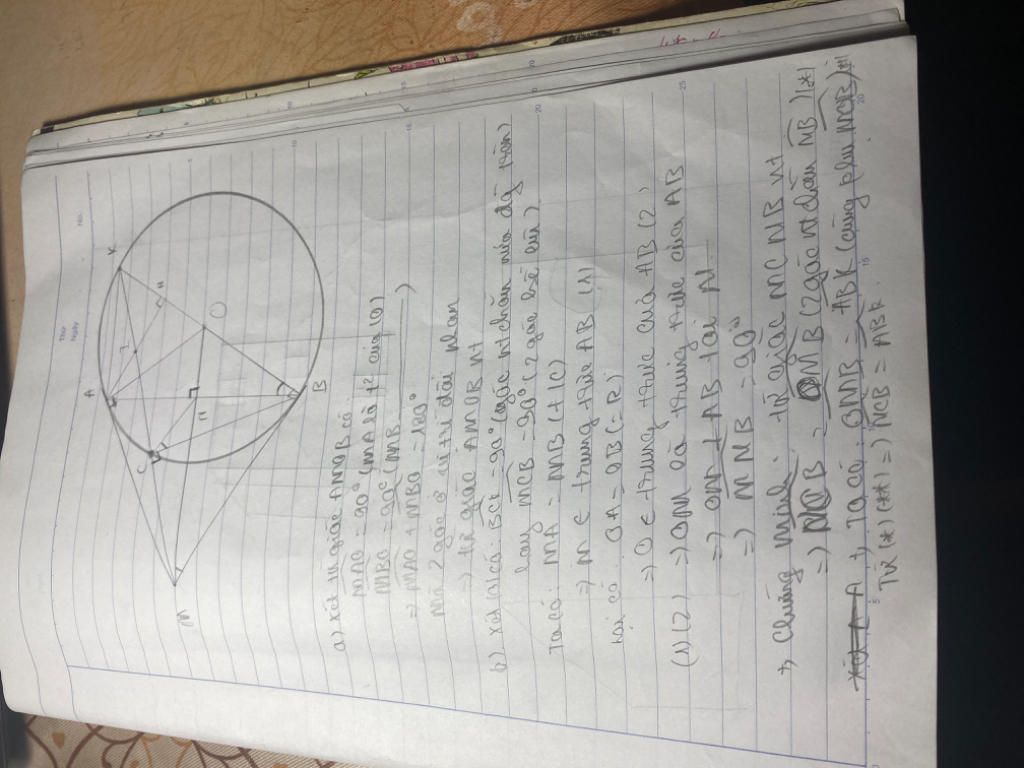 Thứ
Ngày
No.
A
K
I
H
C
O
N
M
B
a) Xét tứ giác AMOB có
MAO = 90° (MA là t² của (O)
MBO = 90° (MB ________ )
=> MAO + MBO = 180°
Mà 2 góc ở vị trí đối nhau
=> tứ giác AMOB nt
b) Xét (O) có: BCK = 90° (góc nt chắn nửa đg tròn)
hay MCB = 90° (2 góc kề bù)
Ta có: MA = MB (t t c)
=> M ∈ trung trực AB (1)
Lại có OA = OB (= R)
=> O ∈ trung trực của AB (2)
(1) (2) => OM là trung trực của AB
=> OM ⊥ AB tại N
=> MNB = 90°
→ Chứng minh: tứ giác MCNB nt
=> NCB = OMB (2 góc nt chắn NB) (*)
→ Ta có: OMB = ABK (cùng phụ MOB) (**)
Từ (*) (**) => NCB = ABK